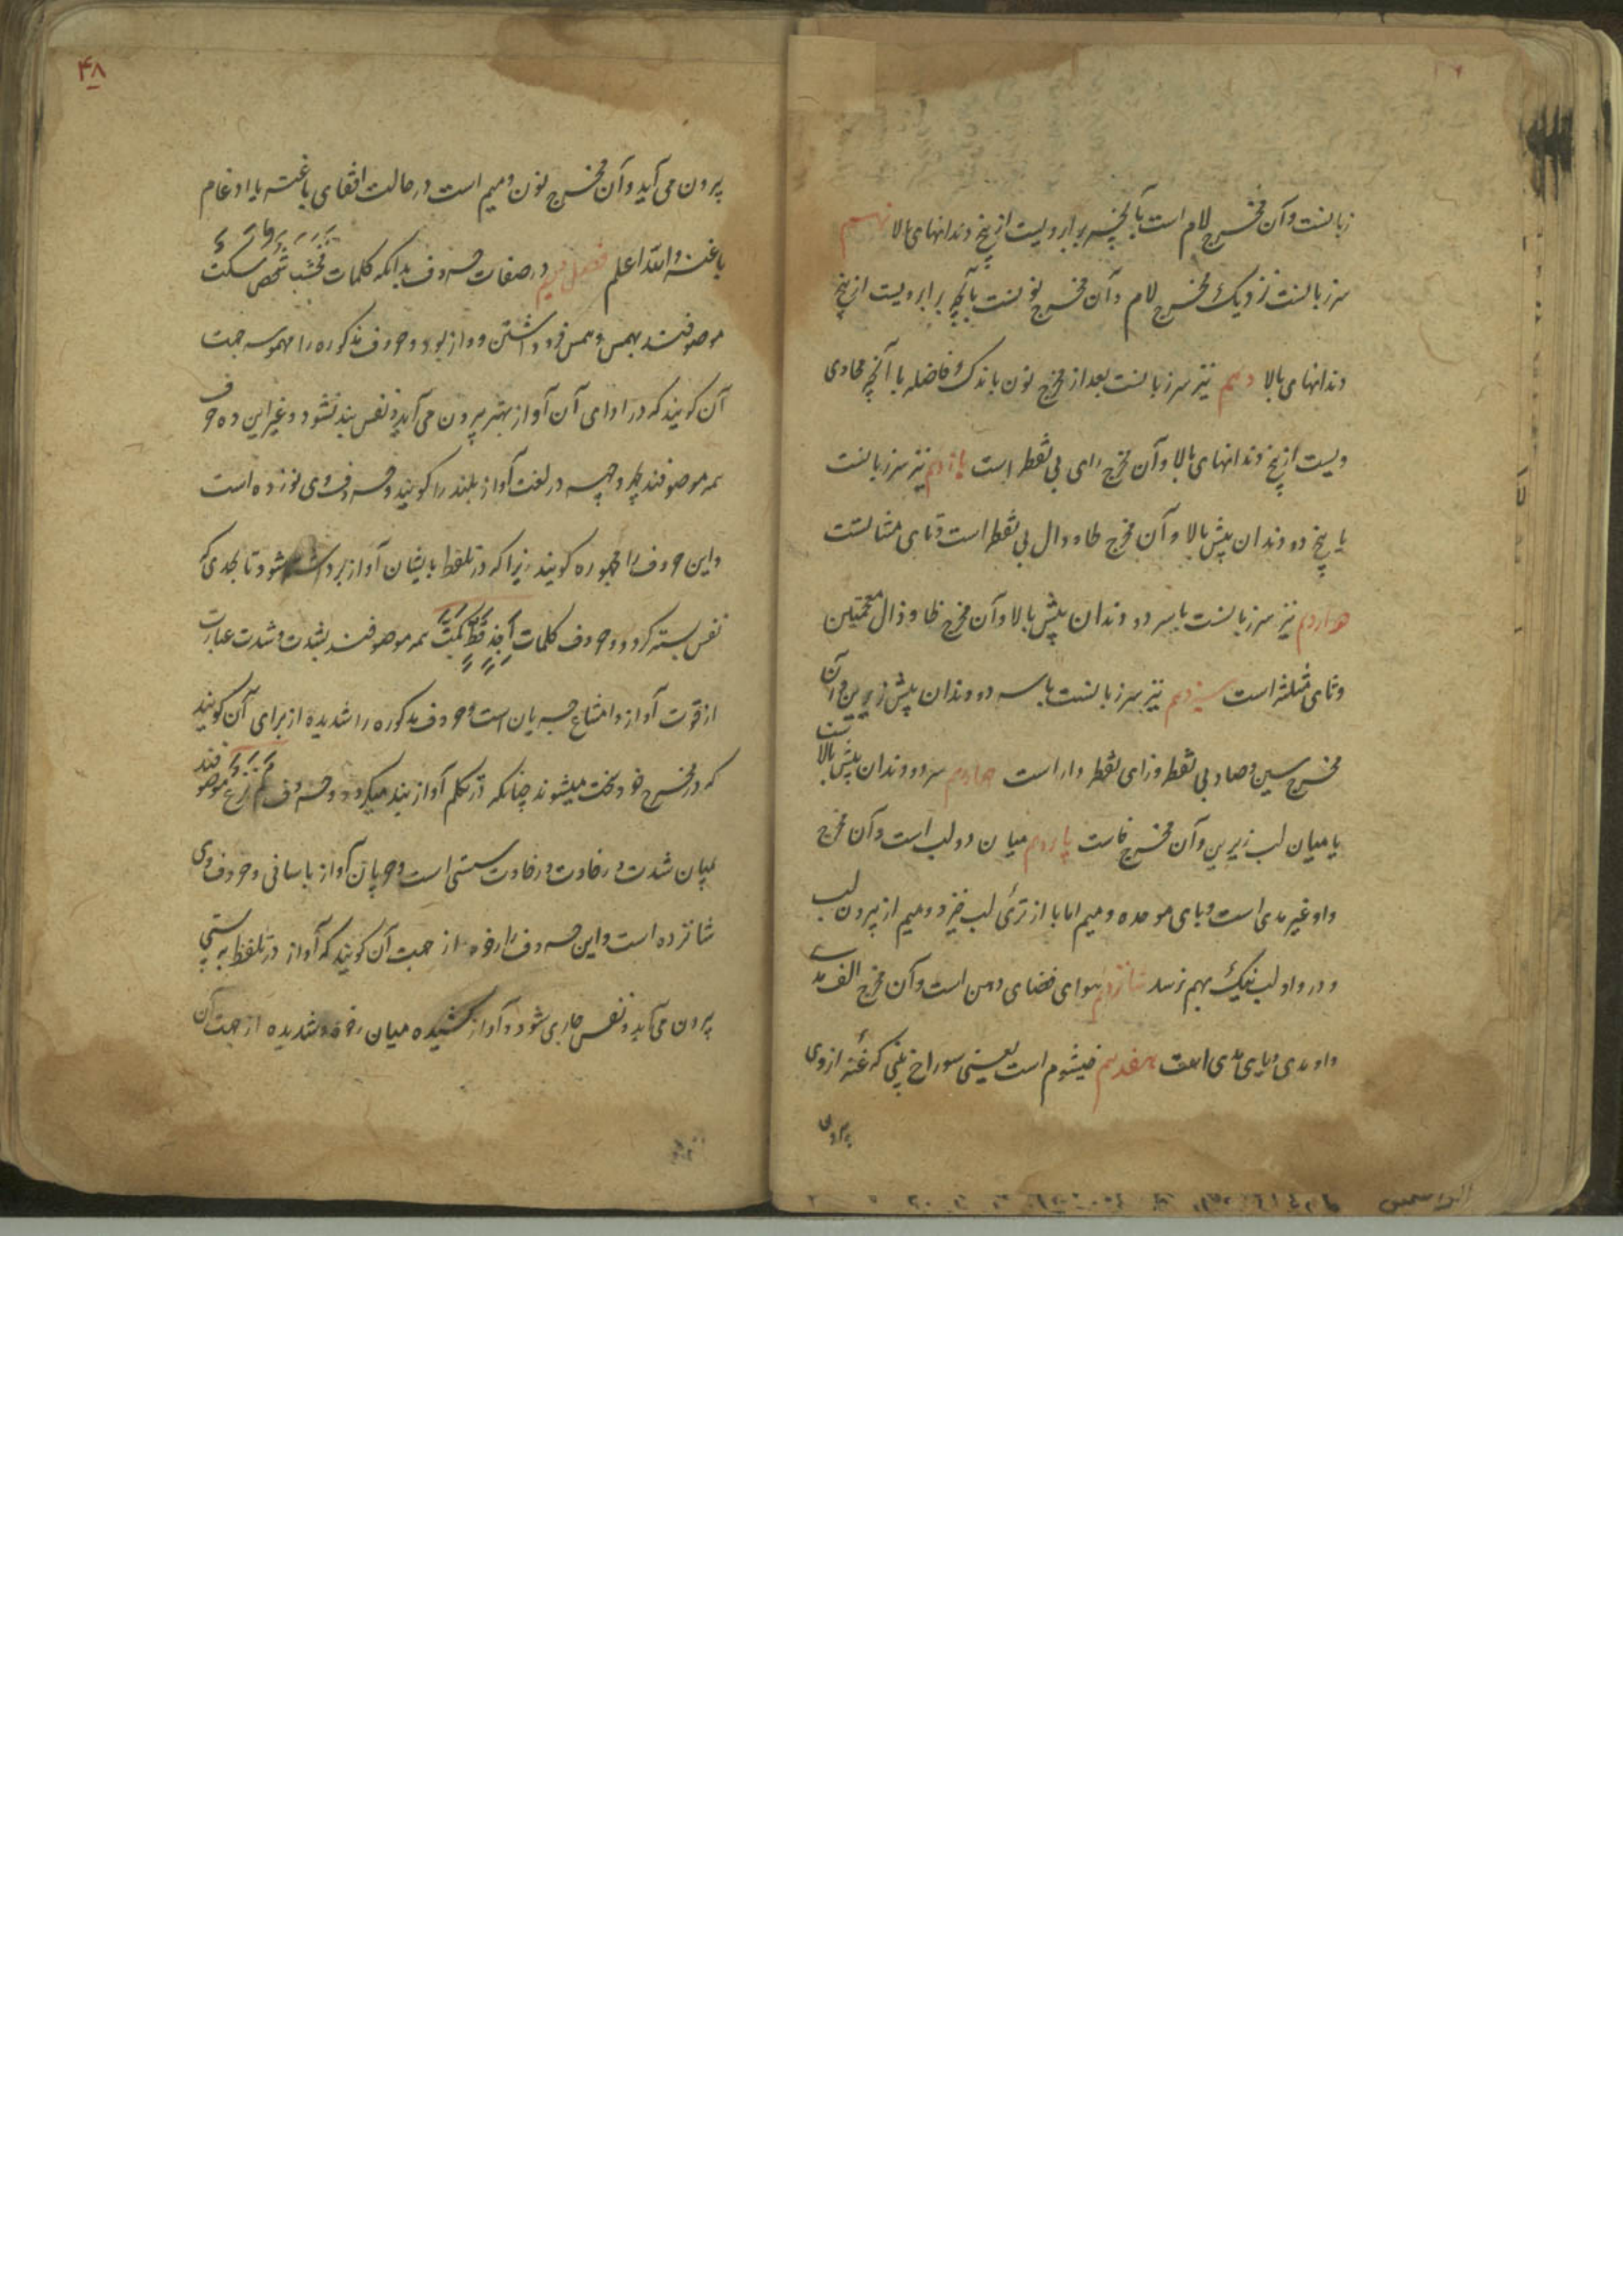 زبانست و آن مخرج لام است با آنچه برابر ویست از بیخ دندانهای بالا نهم
سر زبانست نزدیک مخرج لام و آن مخرج نونست با آنچه برابر ویست از بیخ
دندانهای بالا دهم نیز سر زبانست بعد از مخرج نون باندک فاصله با آنچه محاذی
ویست از بیخ دندانهای بالا و آن مخرج رای بی نقطه است یازدهم نیز سر زبانست
با بیخ دو دندان پیش بالا و آن مخرج طا و دال بی نقطه است و تای مثنا تست
دوازدهم نیز سر زبانست با سر دو دندان پیش بالا و آن مخرج ظا و ذال معجمتین
و ثای مثلثه است سیزدهم نیز سر زبانست با سر دو دندان پیش زیرین و آن
مخرج سین و صاد بی نقطه و زای نقطه دار است چهاردهم سر دو دندان پیش بالا ست
با میان لب زیرین و آن مخرج فاست پانزدهم میان دو لب است و آن مخرج
واو غیر مدی است و بای موحده و میم اما با از تری لب خیزد و میم از بیرون لب
و در واو لب نیک بهم نرسد شانزدهم هوای فضای دهن است و آن مخرج الف مدی
واو مدی و یای مدی است هفدهم خیشوم است یعنی سوراخ بینی که غنه از وی
بیرون
۴۸
بیرون می آید و آن مخرج نون و میم است در حالت اخفای باغنه یا ادغام
باغنه والله اعلم فصل دویم در صفات حروف بدانکه کلمات فحثه شخص سکت
موصوفند بهمس و همس فرو داشتن آواز بود و حروف مذکوره را مهموسه جهت
آن گویند که در ادای آن آواز بهتر بیرون می آید و نفس بند نشود و غیر این ده حرف
همه موصوفند بجهر و جهر در لغت آواز بلند را گویند و حروف وی نوزده است
و این حروف را مجهوره گویند زیرا که در تلفظ بایشان آواز برداشته شود تا بحدی که
نفس بسته گردد و حروف کلمات اجد قط بکت همه موصوفند بشدت و شدت عبارت
از قوت آواز و امتناع جریان است و حروف مذکوره را شدیده از برای آن گویند
که در مخرج خود سخت میشوند چنانکه در تکلم آواز بند میگردد و حروف لم نرع موصوفند
بمیان شدت و رخاوت و رخاوت سستی است و جریان آواز باسانی و حروف وی
شانزده است و این حروف را رخوه از جهت آن گویند که آواز در تلفظ به سستی
بیرون می آید و نفس جاری شود و آواز کشیده میان رخوه و شدیده از جهت آن